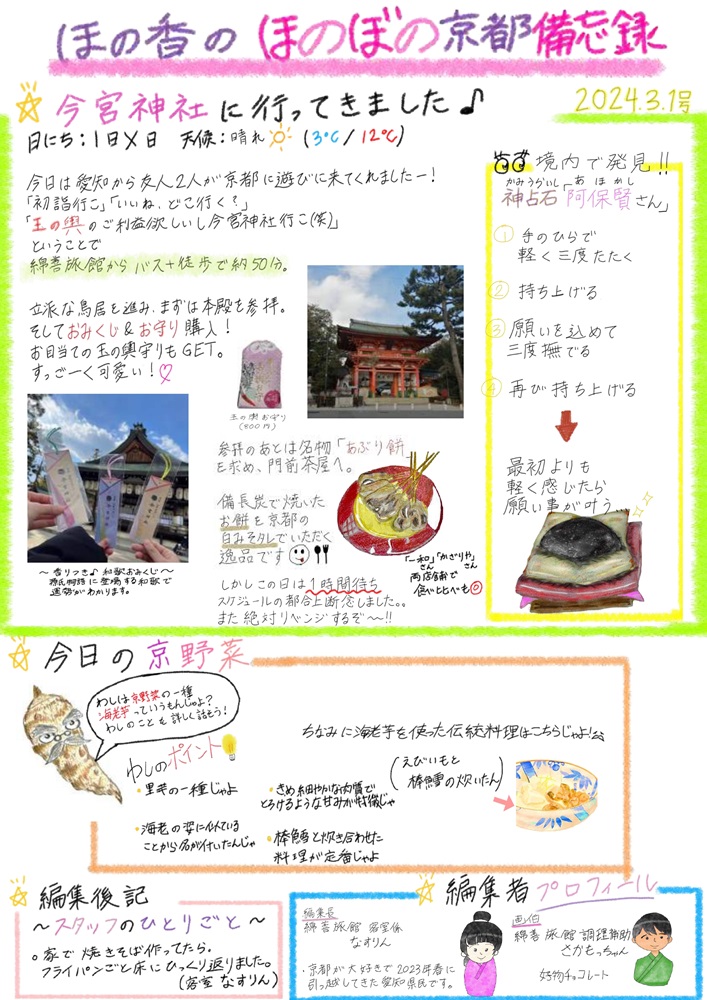 ほの香の ほのぼの京都備忘録
今宮神社に行ってきました♪
2024.3.1号
日にち:1日X日 天候:晴れ (3℃/12℃)
今日は愛知から友人2人が京都に遊びに来てくれましたー!
「初詣行こ」「いいね、どこ行く?」
「玉の輿のご利益欲しいし今宮神社行こ(笑)」
ということで
綿善旅館からバス+徒歩で約50分。
立派な鳥居を進み、まずは本殿を参拝。
そしておみくじ&お守り購入!
お目当ての玉の輿守りもGET。
すっごーく可愛い!♡
玉の輿お守り
(800円)
〜香りつき♪和歌おみくじ〜
源氏物語に登場する和歌で
運勢がわかります。
参拝のあとは名物「あぶり餅」
を求め、門前茶屋へ。
備長炭で焼いた
お餅を京都の
白みそタレでいただく
逸品です
「一和」「かざりや」
さん さん
両店舗で
食べ比べも◎
しかしこの日は1時間待ち
スケジュールの都合上断念しました。。
また絶対リベンジするぞ〜!!
境内で発見!!
かみうらいし あほかし
神占石「阿保賢さん」
① 手のひらで
軽く三度たたく
② 持ち上げる
③ 願いを込めて
三度撫でる
④ 再び持ち上げる
最初よりも
軽く感じたら
願い事が叶う…
今日の京野菜
わしは京野菜の一種
海老芋っていうもんじゃよ?
わしのことも詳しく話そう!
わしのポイント
・里芋の一種じゃよ
・海老の姿に似ている
ことから名が付いたんじゃ
・きめ細やかな肉質で
とろけるような甘みが特徴じゃ
・棒鱈と炊き合わせた
料理が定番じゃよ
ちなみに海老芋を使った伝統料理はこちらじゃよ!
(えびいもと
棒鱈の炊いたん)
編集後記
〜スタッフのひとりごと〜
。家で焼きそば作ってたら。
フライパンごと床にひっくり返りました。
(客室 なすりん)
編集者プロフィール
編集長
綿善旅館 客室係
なすりん
・京都が大好きで2023年春に
引っ越してきた愛知県民です。
画伯
綿善旅館 調理補助
さかもっちゃん
好物チョコレート